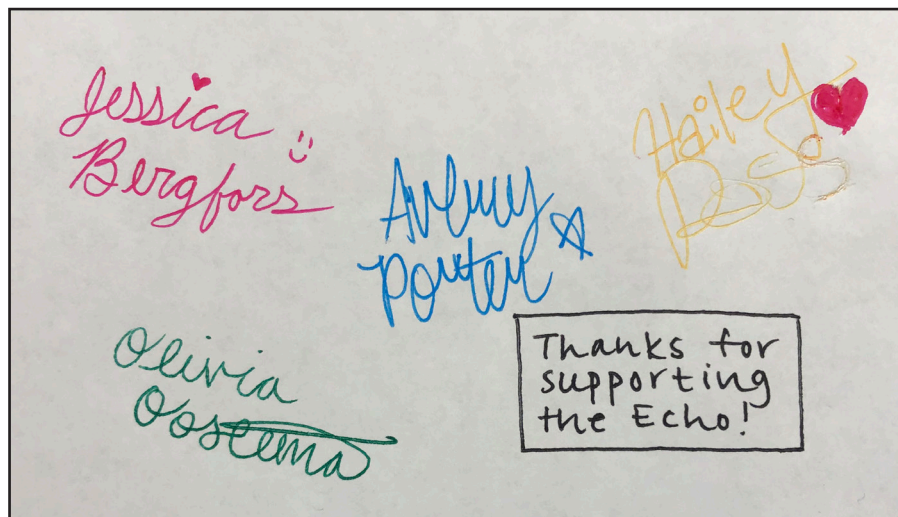 Jessica
Bergfors
Avery
Porter
Hailey
Olivia
Oostema
Thanks for
supporting
the Echo!